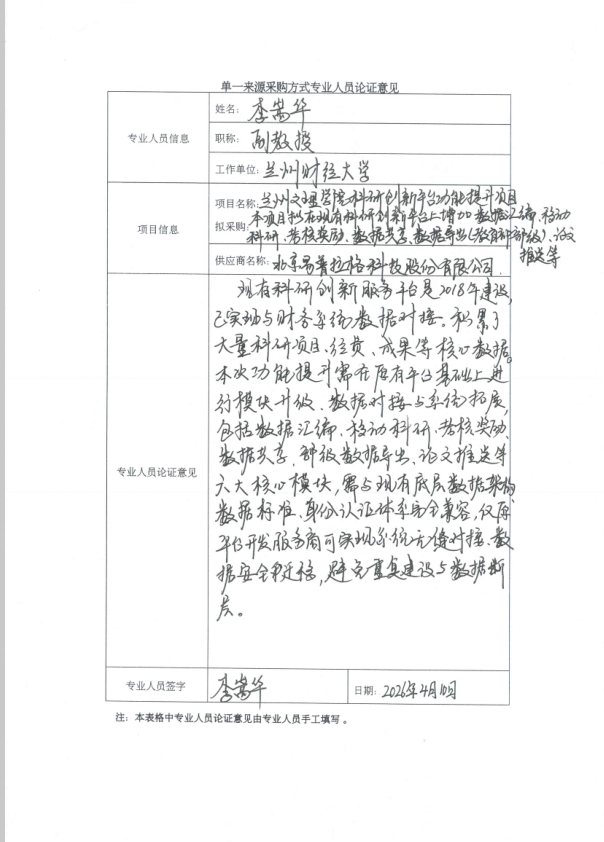 单一来源采购方式专业人员论证意见
专业人员信息
姓名：李嵩华
职称：副教授
工作单位：兰州财经大学
项目信息
项目名称：兰州文理学院科研创新平台功能提升项目
拟采购：本项目拟在现有科研创新平台上增加数据汇编、移动
科研、考核奖励、数据共享、数据导出（教育部部级）、论文
推送等
供应商名称：北京易普拉格科技股份有限公司
专业人员论证意见
现有科研创新服务平台是2018年建设，
已实现与财务系统数据对接。积累了
大量科研项目、经费、成果等核心数据。
本次功能提升需在原有平台基础上进
行模块升级、数据对接与系统拓展，
包括数据汇编、移动科研、考核奖励、
数据共享、部级数据导出、论文推送等
六大核心模块，需与现有底层数据架构、
数据标准、身份认证体系完全兼容，仅原
平台开发服务商可实现系统无缝对接、数
据安全迁移，避免重复建设与数据断
层。
专业人员签字
李嵩华
日期：2026年4月10日
注：本表格中专业人员论证意见由专业人员手工填写。